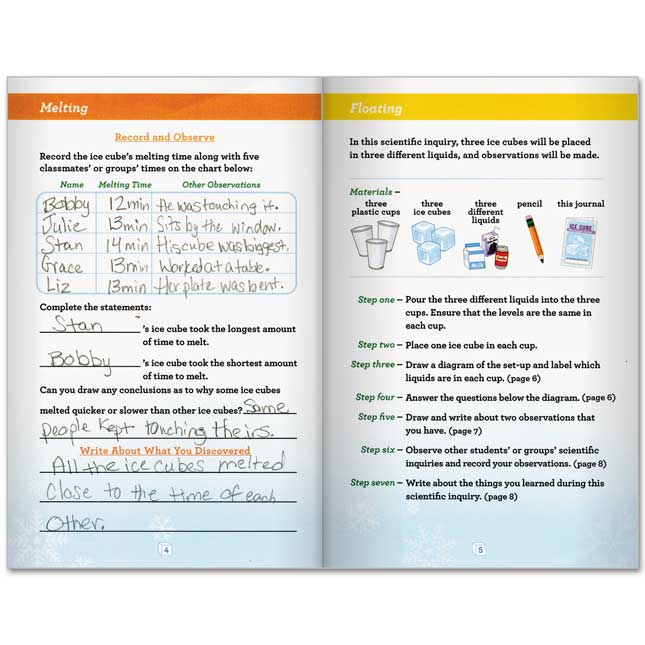 Melting
Record and Observe
Record the ice cube's melting time along with five
classmates' or groups' times on the chart below:
Name Melting Time Other Observations
Bobby 12min He was touching it.
Julie 13min Sits by the window.
Stan 14min His cube was biggest.
Grace 13min Worked at a table.
Liz 13min Her plate was bent.
Complete the statements:
Stan 's ice cube took the longest amount
of time to melt.
Bobby 's ice cube took the shortest amount
of time to melt.
Can you draw any conclusions as to why some ice cubes
melted quicker or slower than other ice cubes? Some
people kept touching theirs.
Write About What You Discovered
All the ice cubes melted
Close to the time of each
Other.
4
Floating
In this scientific inquiry, three ice cubes will be placed
in three different liquids, and observations will be made.
Materials –
three plastic cups
three ice cubes
three different liquids
pencil
this journal
Milk
ICE CUBE
Step one – Pour the three different liquids into the three
cups. Ensure that the levels are the same in
each cup.
Step two – Place one ice cube in each cup.
Step three – Draw a diagram of the set-up and label which
liquids are in each cup. (page 6)
Step four – Answer the questions below the diagram. (page 6)
Step five – Draw and write about two observations that
you have. (page 7)
Step six – Observe other students' or groups' scientific
inquiries and record your observations. (page 8)
Step seven – Write about the things you learned during this
scientific inquiry. (page 8)
5